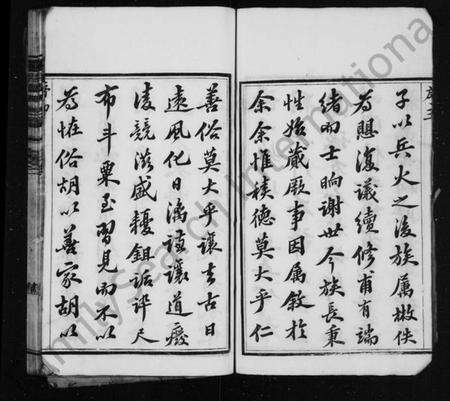 子以兵火之後族属散佚
為懸復議續修甫有端
緒而士晌謝世今族長秉
性始蕆厥事因属敘於
余余惟積德莫大乎仁
善俗莫大乎讓去古日
遠風化日漓謹讓道癈
凌競滋盛耰鉏詬誶尺
布斗粟至習見而不以
為怪俗胡以善家胡以
FamilySearch International